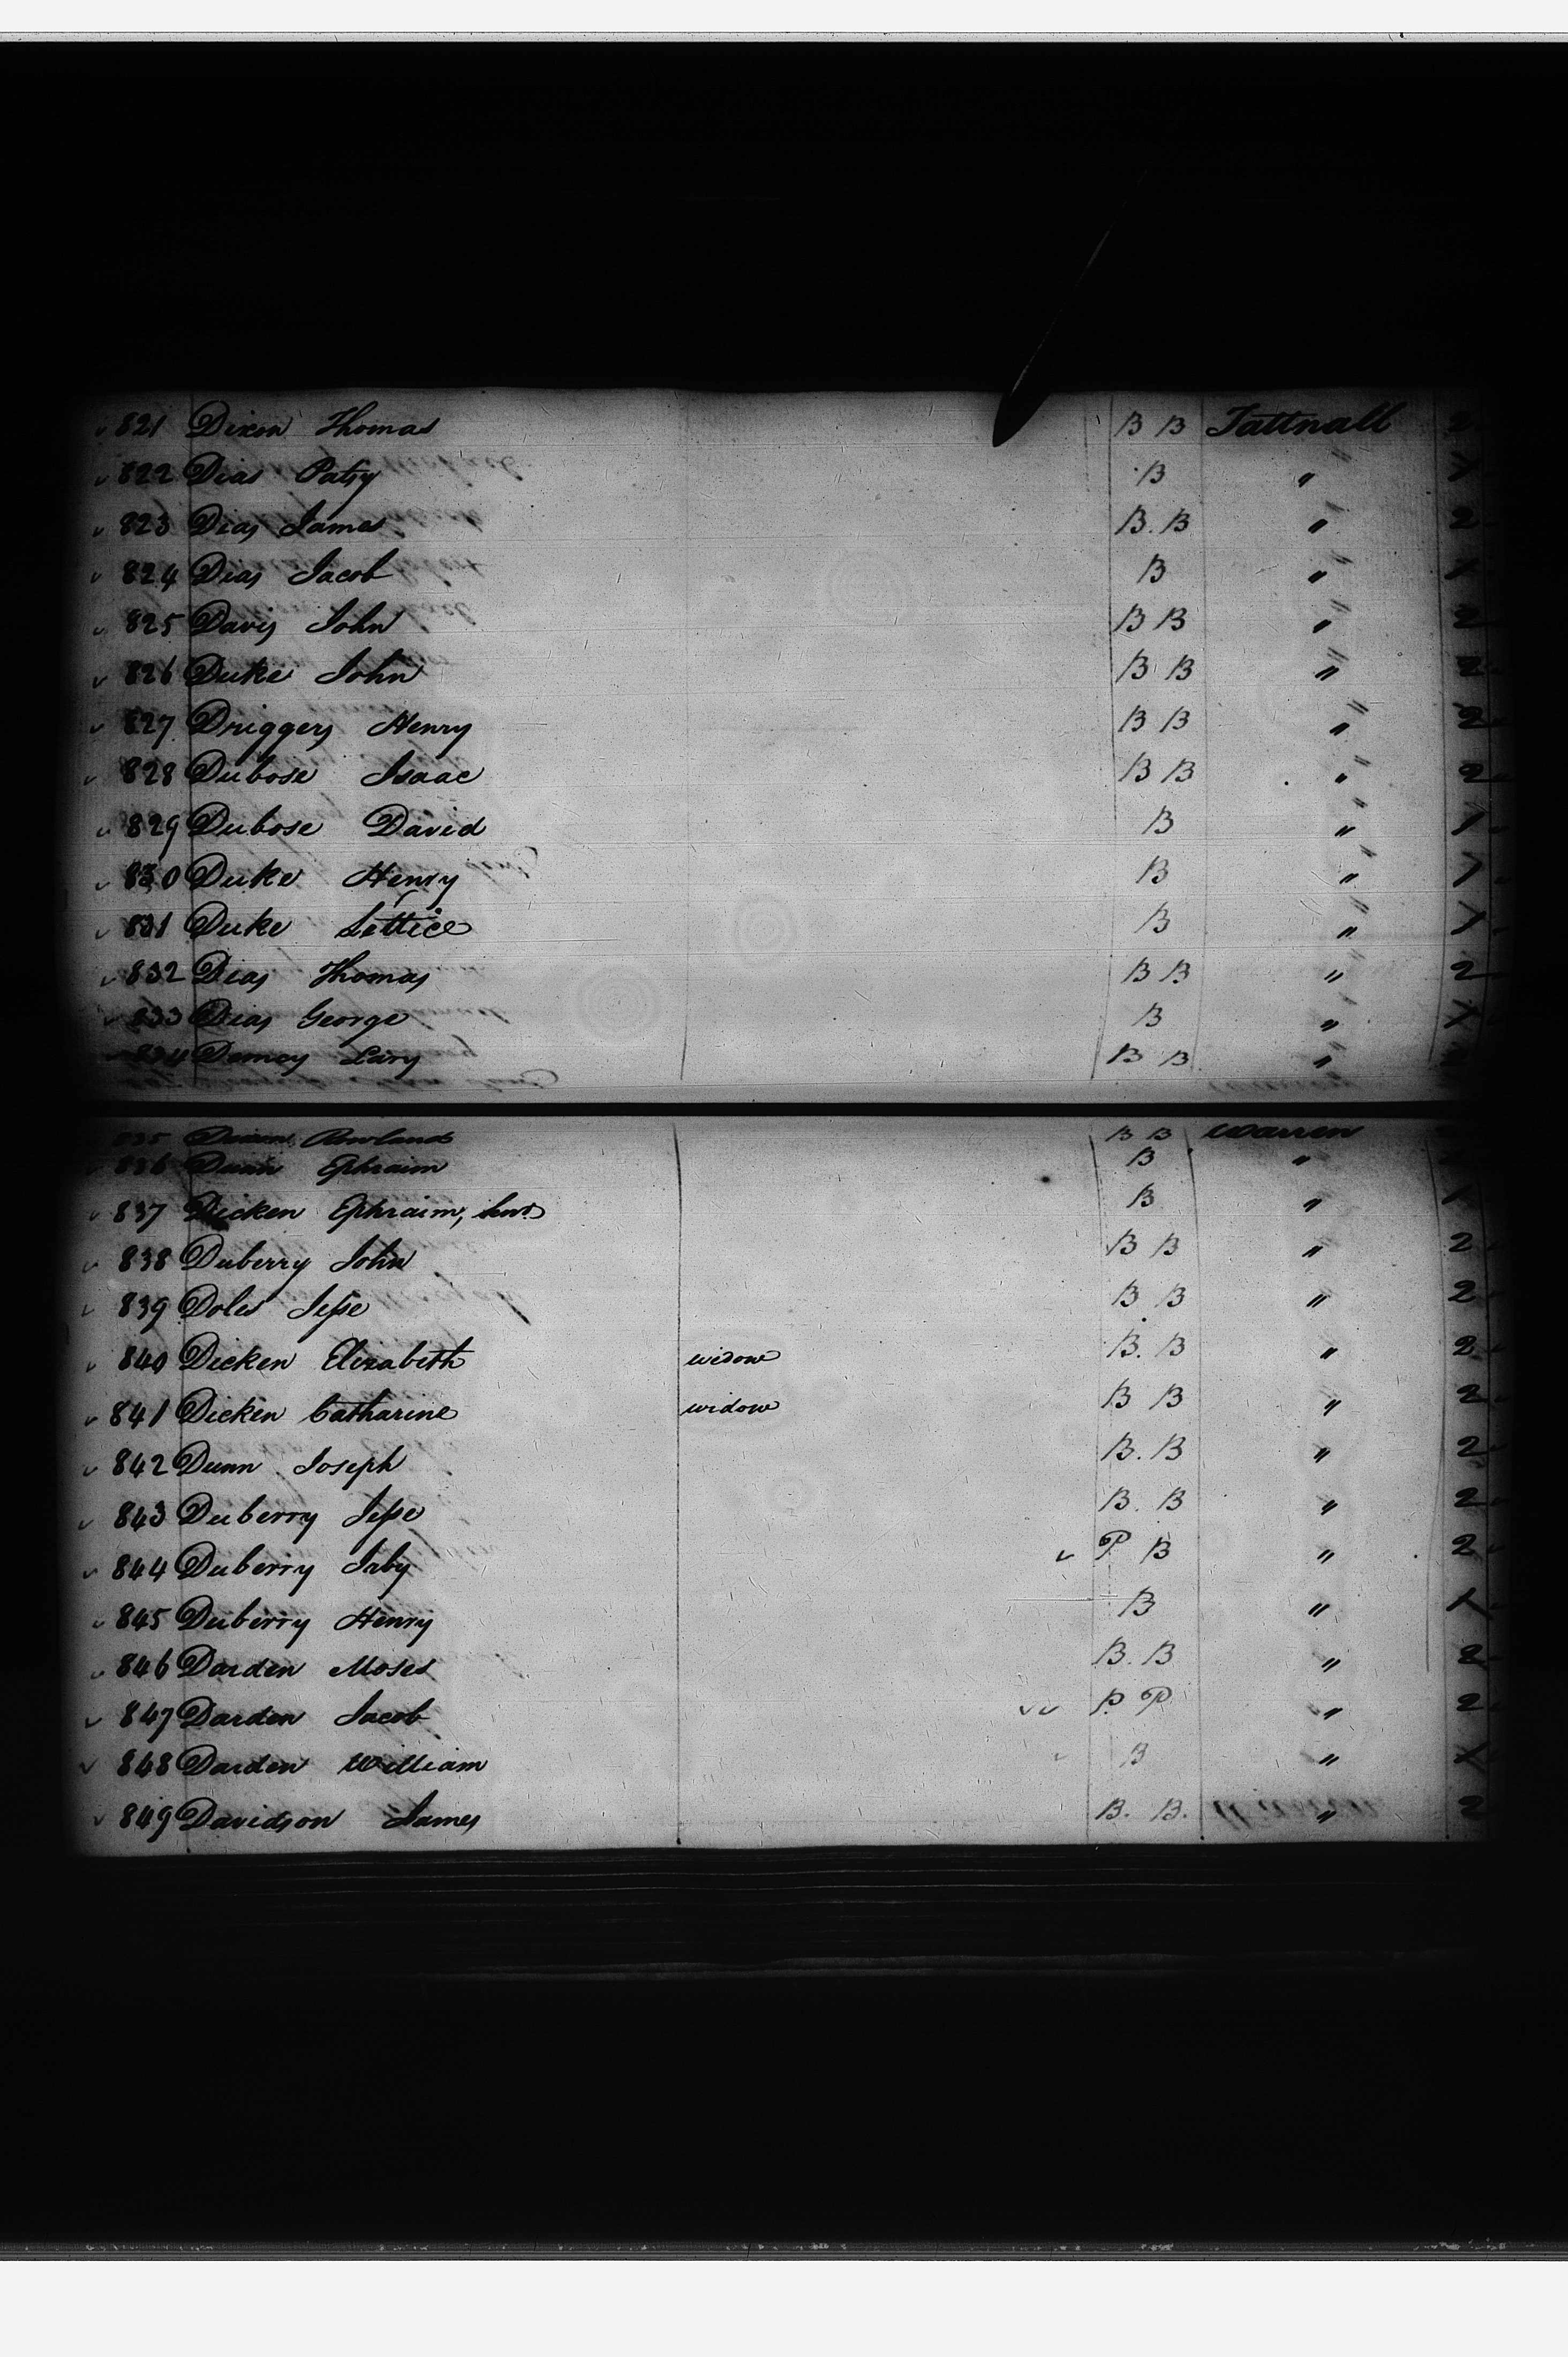 821 Dixon Thomas B B Tattnall 2
822 Dias Patsy B " 1
823 Dias James B. B " 2
824 Dias Jacob B " 1
825 Davis John B B " 2
826 Duke John B B " 2
827 Driggers Henry B B " 2
828 Dubose Isaac B B " 2
829 Dubose David B " 1
830 Duke Henry B " 1
831 Duke Lettice B " 1
832 Dias Thomas B B " 2
833 Dias George B " 1
834 Lary B B "
835 Rowland B B Warren
836 Dunn Ephraim B "
837 Dicken Ephraim, Senr B " 1
838 Duberry John B B " 2
839 Doles Jesse B B " 2
840 Dicken Elizabeth widow B. B " 2
841 Dicken Catharine widow B B " 2
842 Dunn Joseph B. B " 2
843 Duberry Jesse B. B " 2
844 Duberry Irby P B " 2
845 Duberry Henry B " 1
846 Darden Moses B. B " 2
847 Darden Jacob P. P " 2
848 Darden William B " 1
849 Davidson James B. B. " 2